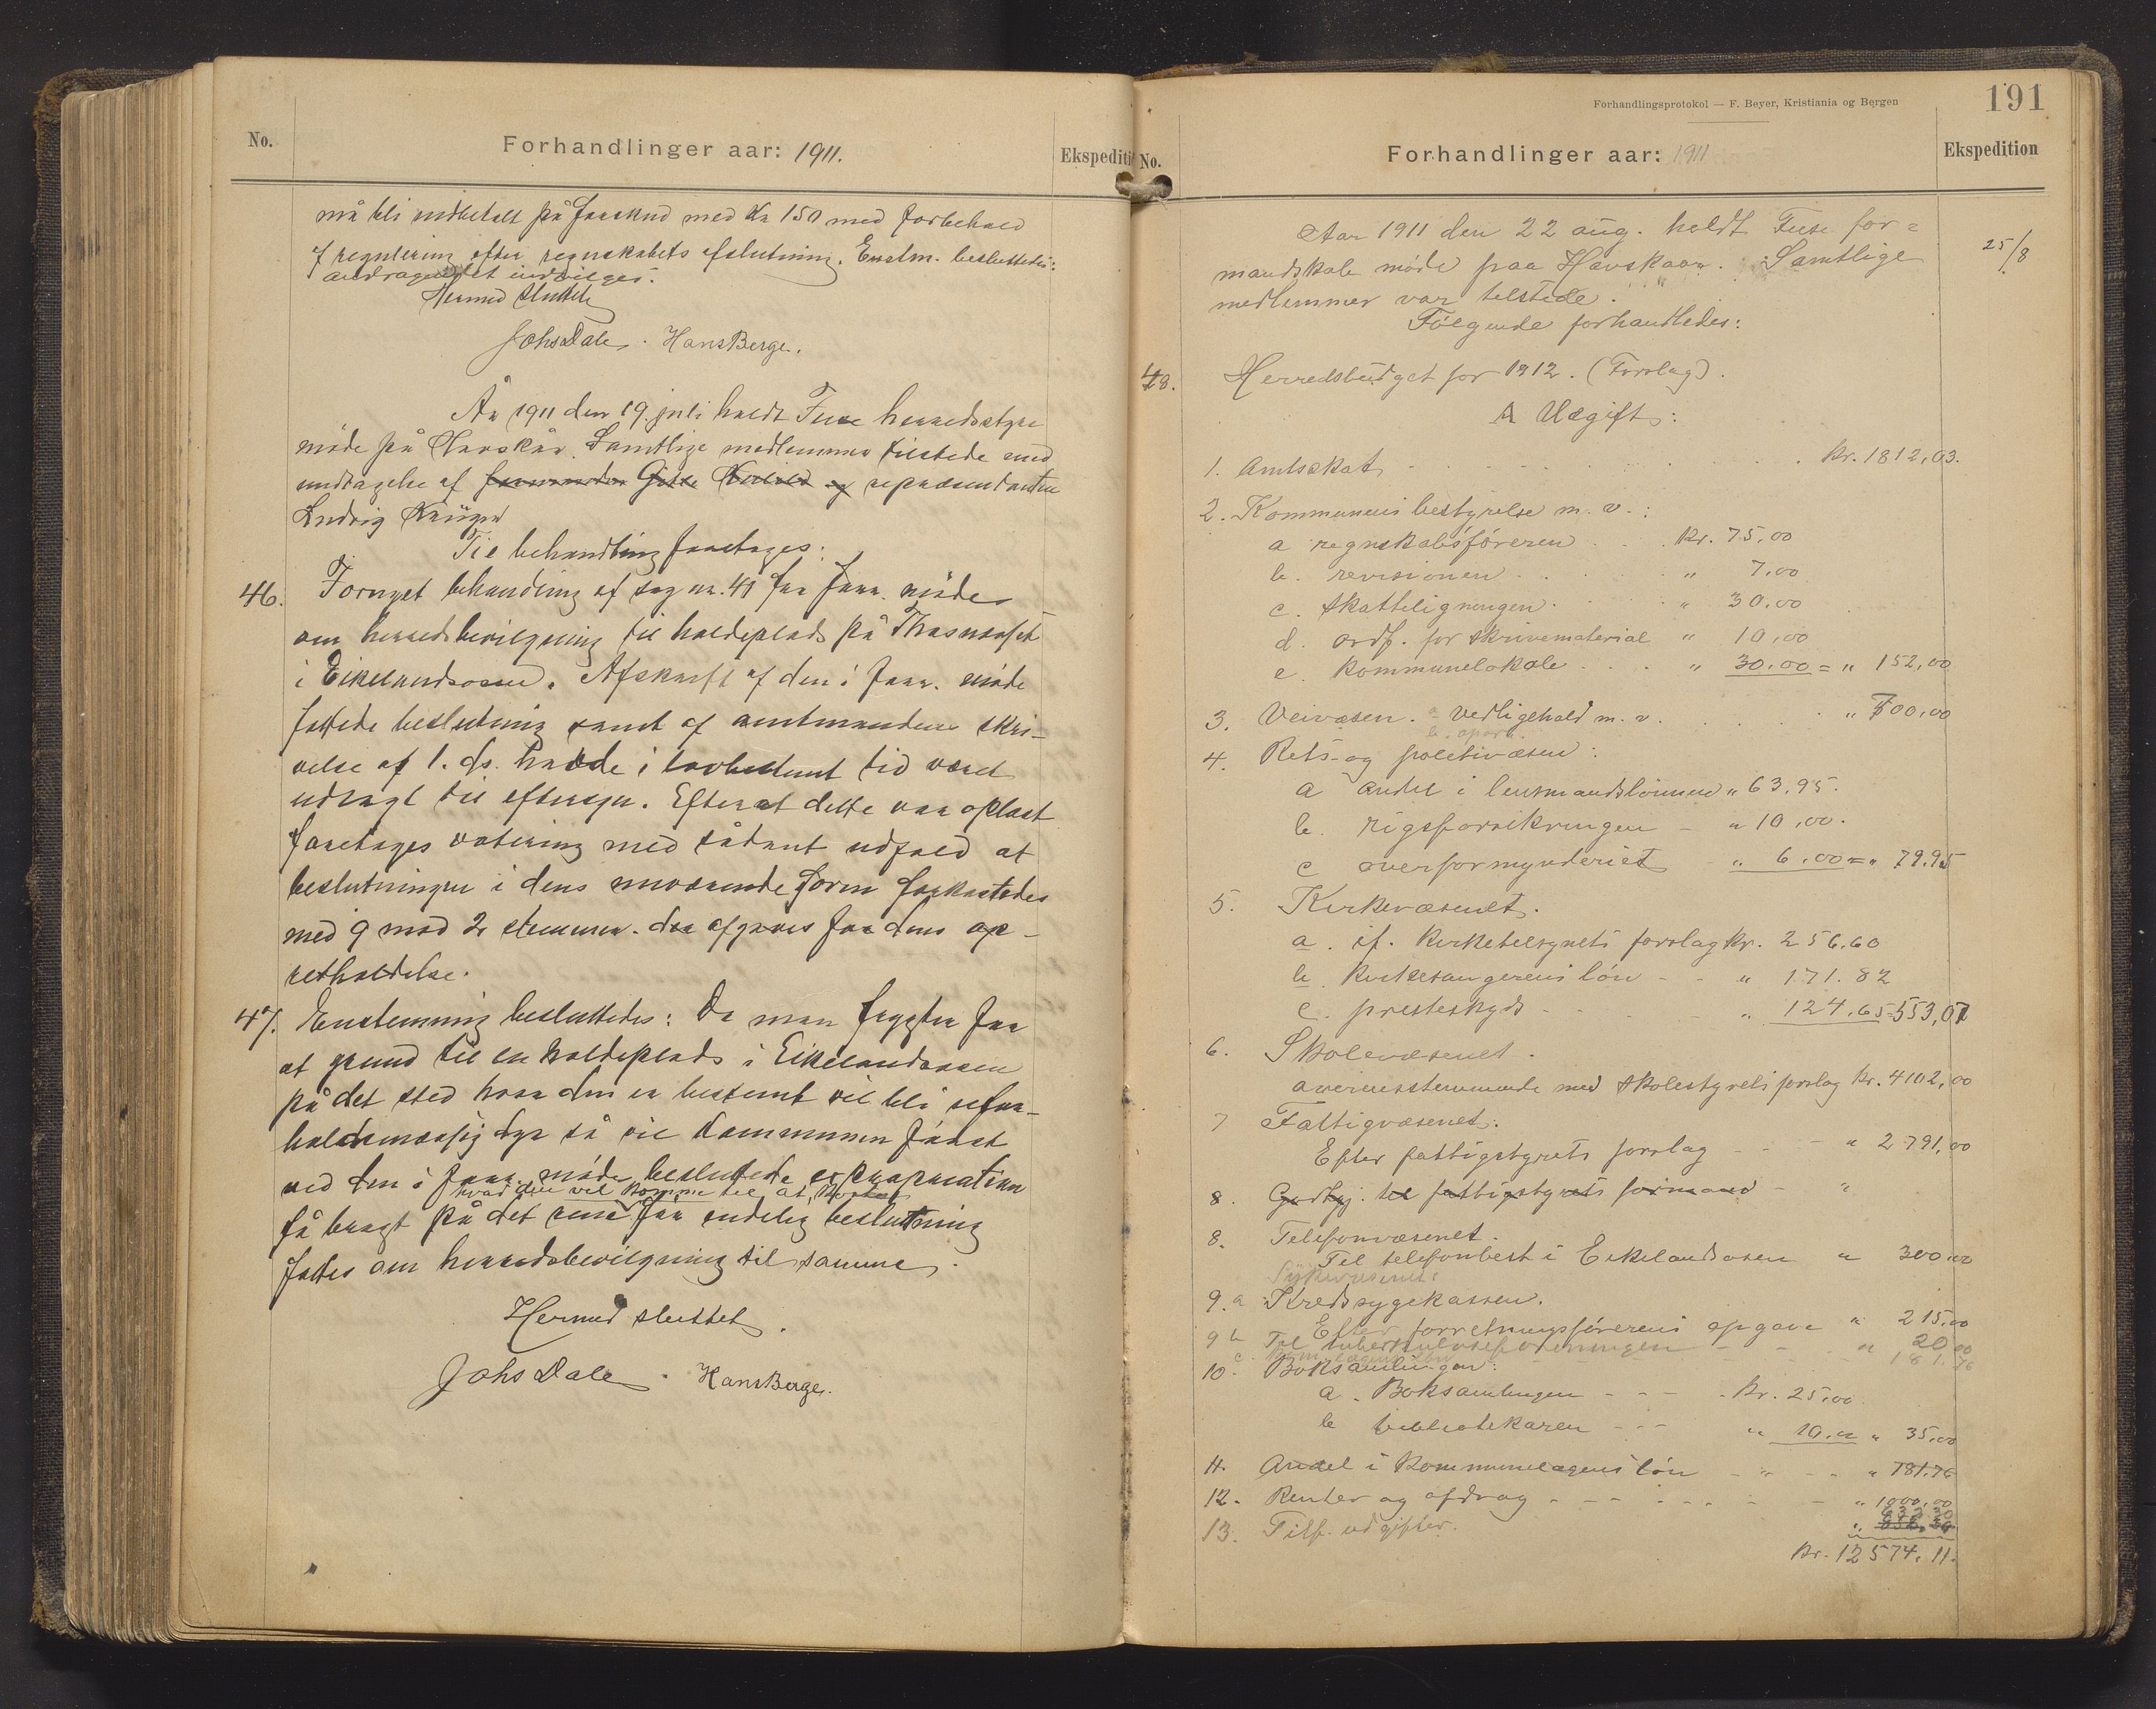 No.
Forhandlinger aar: 1911.
Ekspediti
må bli utbetalt på forskud med Kr 150 med forbehold
af regulering efter regnskabets afslutning. Enstm. besluttedes:
andragendet indvilges.
Hermed sluttet
Johs Dale. Hans Berge.
År 1911 den 19. juli holdt Fuse herredsstyre
møde på Havskår. Samtlige medlemmer tilstede med
undtagelse af formanden Gitle og repræsentanten
Ludvig Krüger
Til behandling foretoges:
46. Fornyet behandling af sag nr. 41 for form. møde
om herredsbevilgning til holdeplads på
i Eikelandsosen. Afskrift af den i form. møde
fattede beslutning samt af amtmandens skri-
velse af 1. ds. havde i lovbestemt tid været
udlagt til eftersyn. Efterat dette var oplæst
foretoges votering med sådant udfald at
beslutningen i dens nuværende form forkastedes
med 9 mod 2 stemmer. der afgaves for dens op-
retholdelse.
47. Enstemmig besluttedes: Da man frygter for
at grund til en holdeplads i Eikelandsosen
på det sted hvor den er bestemt vil bli ufor-
holdsmæssig dyr så vil kommunen først
ved den i form. møde besluttede expropriation
hvad den vil komme til at koste
få bragt på det rene før endelig beslutning
fattes om herredsbevilgning til samme.
Hermed sluttet.
Johs Dale. Hans Berge.
Forhandlingsprotokol — F. Beyer, Kristiania og Bergen
191
No.
Forhandlinger aar: 1911
Ekspedition
Aar 1911 den 22 aug. holdt Fuse for=
25/8
mandskab møde paa Havskaar. Samtlige
medlemmer var tilstede.
Følgende forhandledes:
48. Herredsbudget for 1912. (Forslag).
A Udgift:
1. Amtsskat kr. 1812,03.
2. Kommunens bestyrelse m. v.:
a regnskabsføreren kr. 75,00
b. revisionen " 7,00
c. skatteligningen " 30,00
d. ordf. for skrivematerial " 10,00
e. kommunelokale " 30.00 = " 152,00
3. Veivæsen. a vedligehold m. v. " 700,00
4. Rets- og politivæsen:
a andel i lensmandslønnen " 63,95.
b. rigsforsikringen - " 10,00.
c overformynderiet " 6.00 = " 79.95
5. Kirkevæsenet.
a. if. kirketilsynets forslag kr. 256.60
b. kirkesangerens løn - - " 171.82
c. presteskyds " 124.65 = 553,07
6. Skolevæsenet.
overensstemmende med skolestyrets forslag kr. 4102,00
7 Fattigvæsenet:
Efter fattigstyrets forslag - - " 2791,00
8. Godtgj. til fattigstyrets formand - "
8. Telefonvæsenet.
Til telefonbest i Eikelandsosen " 300.00
Sykevæsenet:
9. a Kredssygekassen.
Efter forretningsførerens opgave " 215.00
9 b Til tuberkuloseforeningen - - " 20 00
c. 181.76
10. Boksamlingen:
a. Boksamlingen - - - kr. 25.00
b bibliotekaren - - - " 10.00 " 35.00
11. Andel i kommunelægens løn - " - - " 181.76
12. Renter og afdrag - - - - - - " 1000.00
632,30
13. Tilf. udgifter. "
Kr. 12574.11.